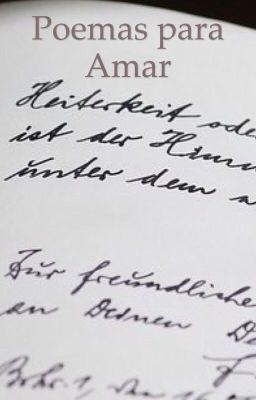 Poemas para
Amar
Heiterkeit ode
ist der Himm
unter dem a
Zur freundliche
an Deinen De